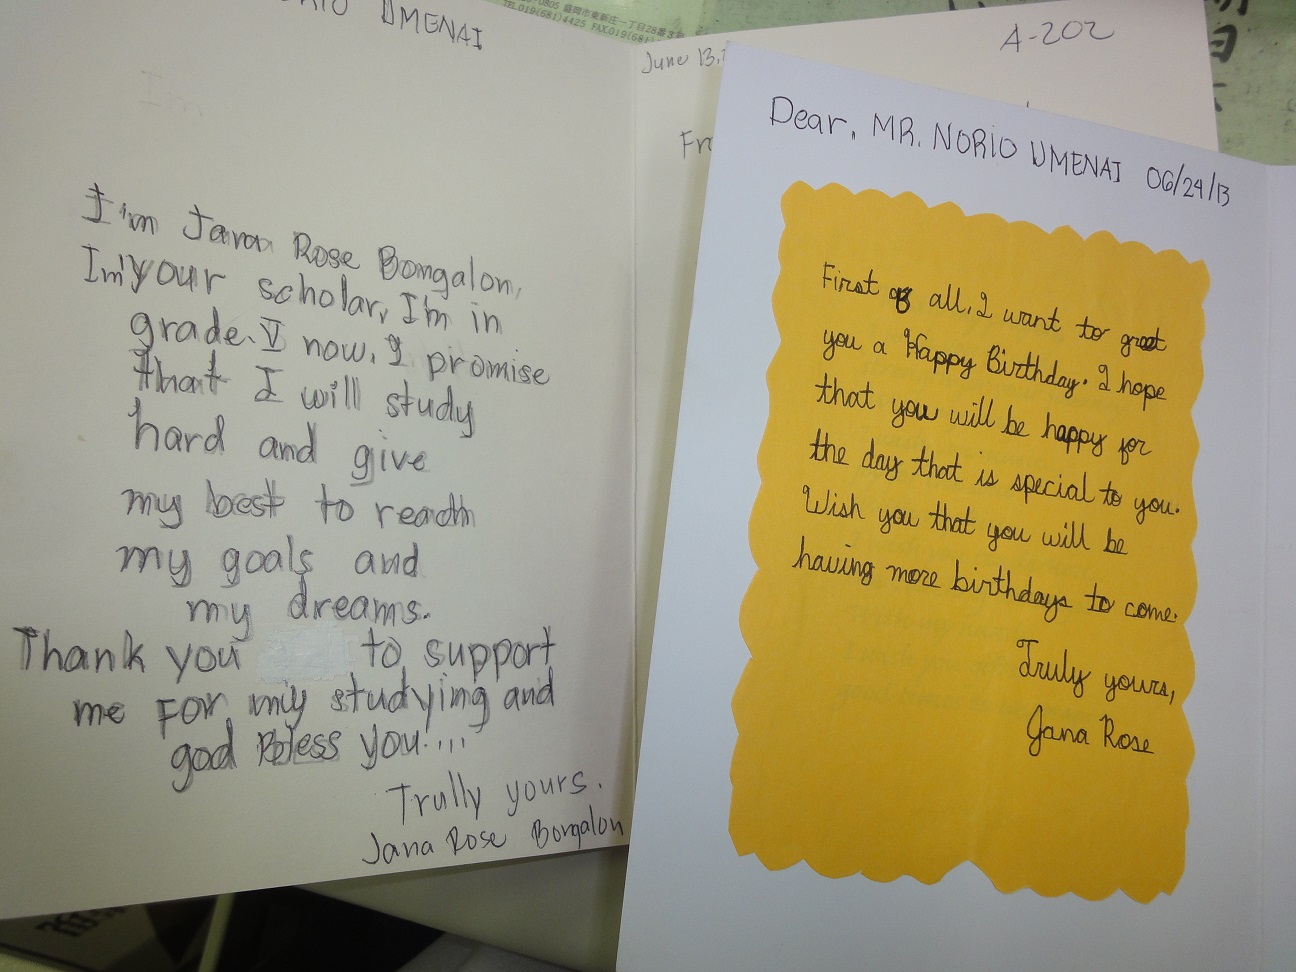 UMENAI
I'm Jana Rose Bongalon,
I'm your scholar, I'm in
grade V now. I promise
that I will study
hard and give
my best to reach
my goals and
my dreams.
Thank you to support
me For my studying and
god Bless you!...
Trully yours.
Jana Rose Bongalon
TEL019(681)4425 FAX019(681)
June 13,
A-202
Dear, MR. NORIO UMENAI 06/24/13
First of all, I want to greet
you a Happy Birthday. I hope
that you will be happy for
the day that is special to you.
Wish you that you will be
having more birthdays to come.
Truly yours,
Jana Rose